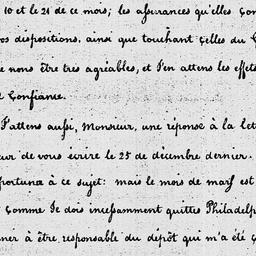 10 et le 21 de ce mois; les assurances qu'elles con
os dispositions, ainsi que touchant celles du C
e nous être très agréables, et J'en attens les effets
t Confiance.
J'attens aussi, Monsieur, une réponse à la Let
eur de vous écrire le 25 de décembre dernier.
portuna à ce sujet: mais le mois de mars est
Comme Je dois incessamment quitter Philadelp
ner à être responsable du dépôt qui m'a été c